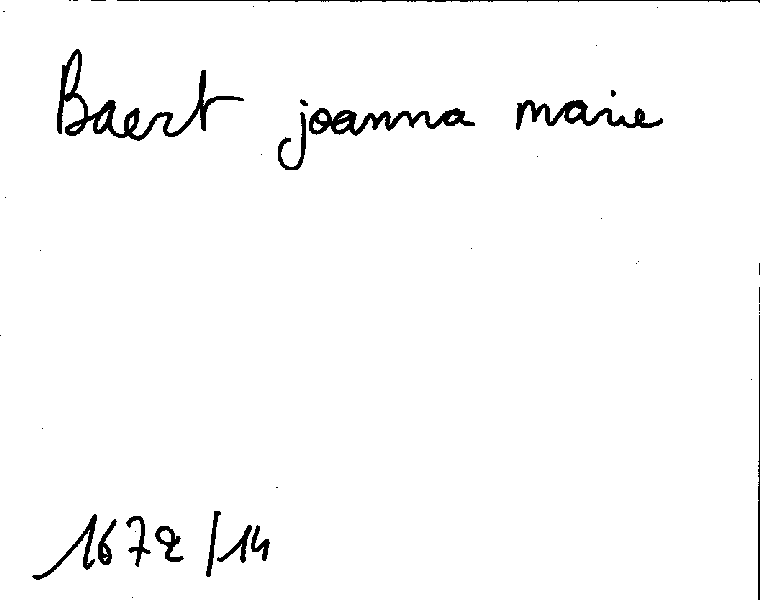 Baert joanna marie
1672/14